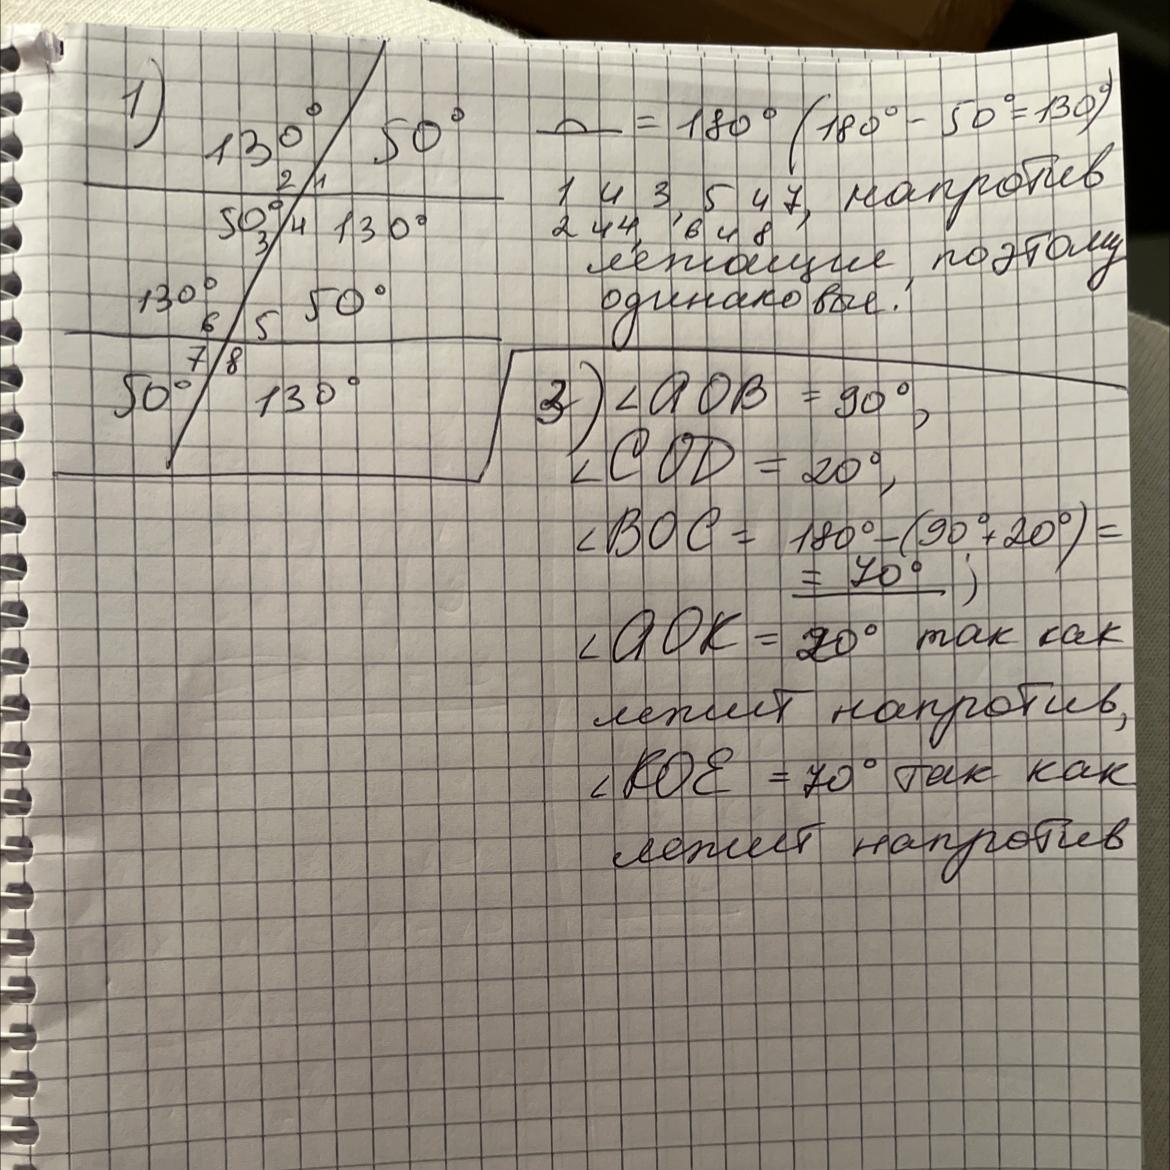 1)
130° 50°
2 1
50° 3 4 130°
130° 50°
6 5
7 8
50° 130°
= 180° (180° - 50° = 130°)
1 и 3, 5 и 7, напротив
2 и 4, 6 и 8
лежащие, поэтому
одинаковые.
3) ∠AOB = 90°,
∠COD = 20°,
∠BOC = 180° - (90° + 20°) =
= 70° ;
∠AOK = 20° так как
лежит напротив,
∠KOE = 70° так как
лежит напротив